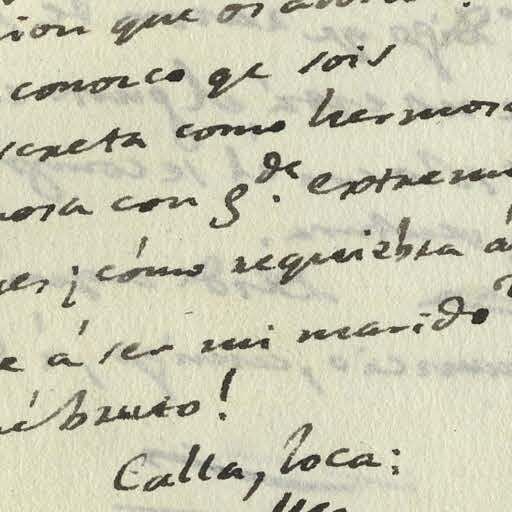 ion que os adora
conozco qe sois
screta como hermosa
osa con g.de extrem
es; ¿cómo requiebra á
e á ser mi marido?
é bruto!
Calla, loca: